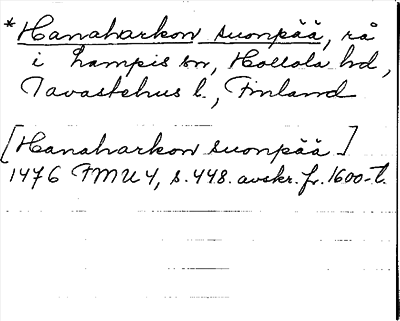 *Hanaharkon suonpää, rå
i Lampis sn, Hollola hd,
Tavastehus l., Finland
[Hanaharkon suonpää]
1476 FMU 4, s. 448. avskr. fr. 1600-t.